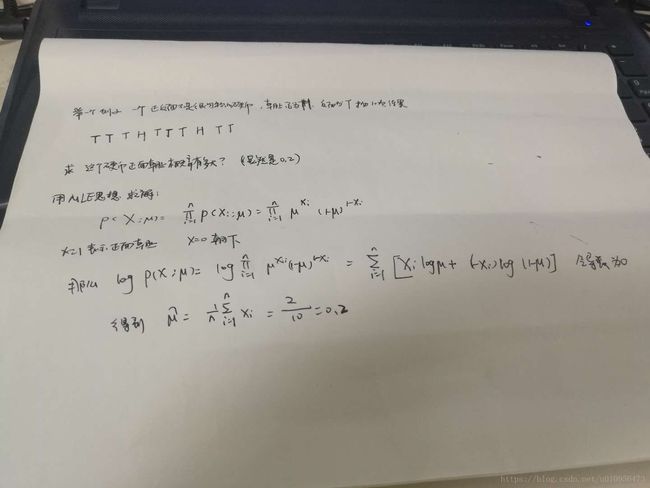 举一个例子 一个正反面不是很均匀的硬币，朝上正面H，反面为T 抛10次结果
T T T H T T T H T T
求 这个硬币正面朝上概率有多大？（显然是0.2）
用MLE思想 求解：
P(X;μ) = ∏_{i=1}^{n} P(Xi;μ) = ∏_{i=1}^{n} μ^{Xi} (1-μ)^{1-Xi}
X=1 表示正面朝上 X=0 朝下
那么 log P(X;μ) = log ∏_{i=1}^{n} μ^{Xi}(1-μ)^{1-Xi} = ∑_{i=1}^{n} [Xi log μ + (1-Xi) log (1-μ)] 令导数为0
得到 μ̂ = 1/n ∑_{i=1}^{n} Xi = 2/10 = 0.2
https://blog.csdn.net/u010956473